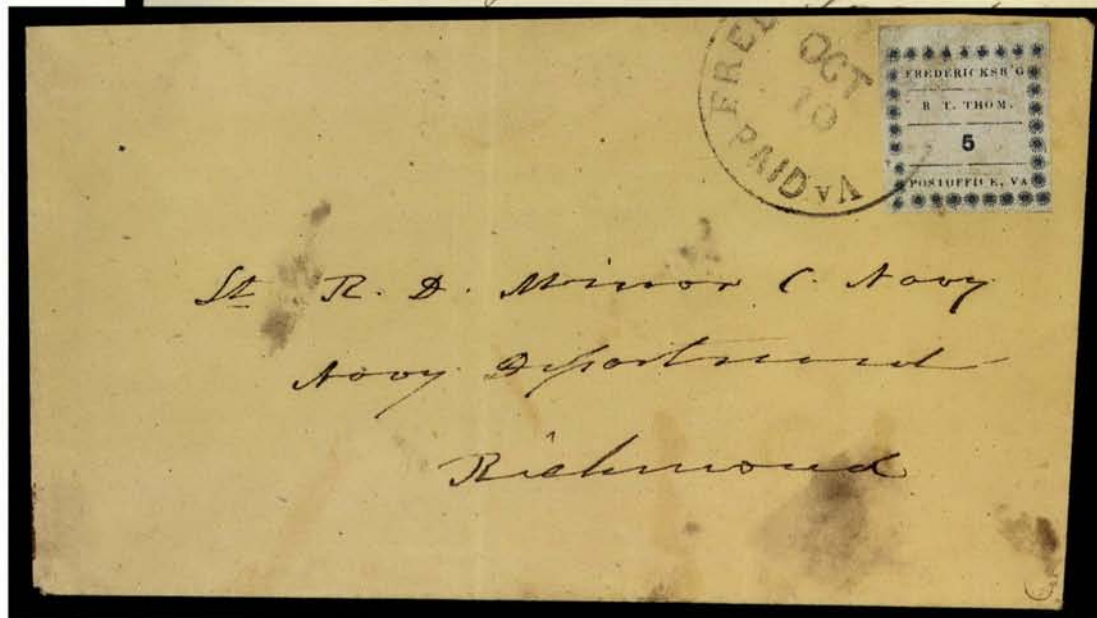 FRED
OCT
10
PAID
VA
FREDERICKSB'G
R. T. THOM.
5
POSTOFFICE, VA
Lt R. D. Minor C. Navy
Navy Department
Richmond